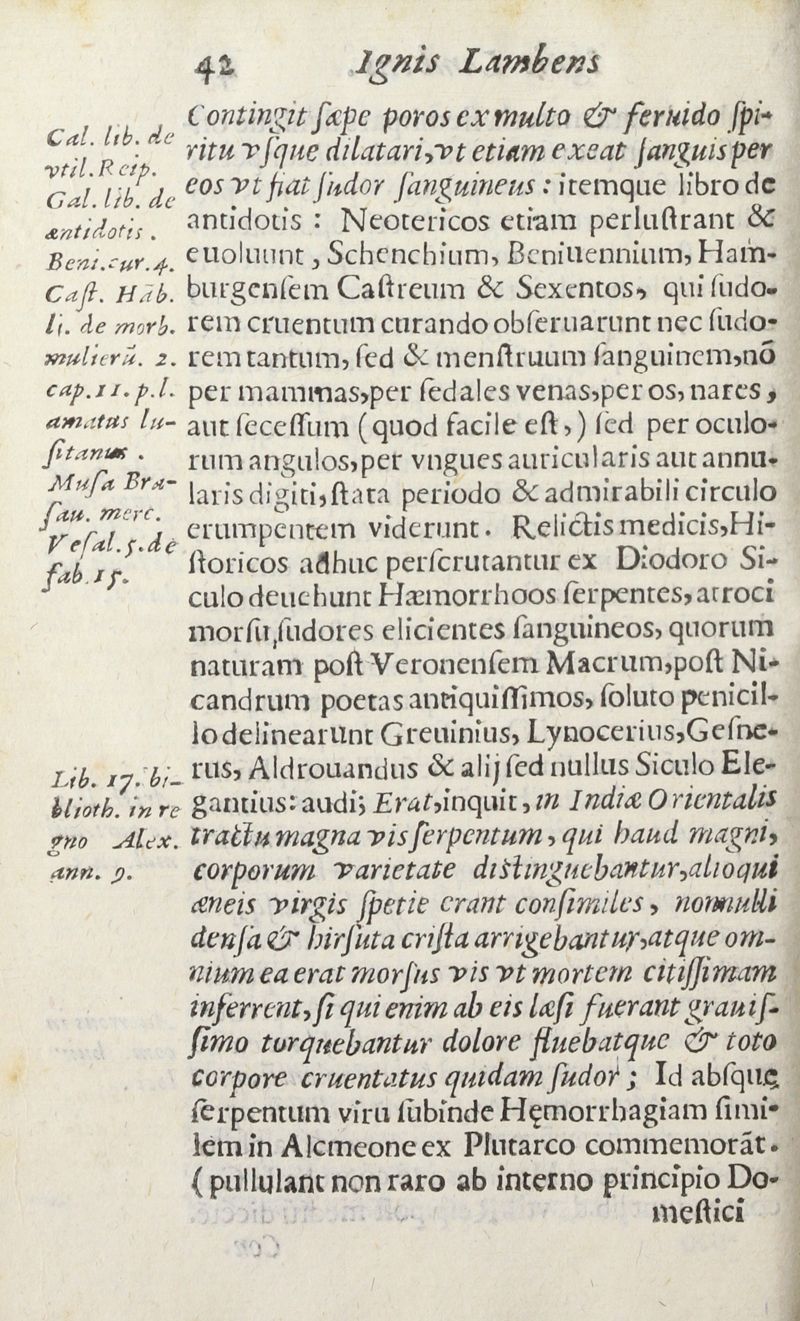 42 Ignis Lambens
Contingit sæpe poros ex multo & feruido spi-
ritu vsque dilatari, vt etiam exeat sanguis per
eos vt fiat sudor sanguineus: itemque libro de
antidotis : Neotericos etiam perlustrant &
euoluunt, Schenchium, Beniuennium, Ham-
burgensem Castreum & Sexentos, qui sudo-
rem cruentum curando obseruarunt nec sudo-
rem tantum, sed & menstruum sanguinem, nō
per mammas, per sedales venas, per os, nares,
aut secessum (quod facile est,) sed per oculo-
rum angulos, per vngues auricularis aut annu-
laris digiti, stata periodo & admirabili circulo
erumpentem viderunt. Relictis medicis, Hi-
storicos adhuc perscrutantur ex Diodoro Si-
culo deuehunt Hæmorrhoos serpentes, atroci
morsu, sudores elicientes sanguineos, quorum
naturam post Veronensem Macrum, post Ni-
candrum poetas antiquissimos, soluto penicil-
lo delinearunt Greuinius, Lynocerius, Gesne-
rus, Aldrouandus & alij sed nullus Siculo Ele-
gantius: audi; Erat, inquit, in Indiæ Orientalis
tractu magna vis serpentum, qui haud magni,
corporum varietate distinguebantur, alioqui
æneis virgis spetie erant consimiles, nonnulli
densa & hirsuta crista arrigebantur, atque om-
nium ea erat morsus vis vt mortem citissimam
inferrent, si qui enim ab eis læsi fuerant grauis-
simo torquebantur dolore fluebatque & toto
corpore cruentatus quidam sudor; Id absque
serpentum viru subinde Hęmorrhagiam simi-
lem in Alcmeone ex Plutarco commemorāt.
(pullulant non raro ab interno principio Do-
mestici
Cal. lib. de
vtil. Rcip.
Gal. lib. de
antidotis.
Beni. cur. 4.
Cast. Hāb.
li. de morb.
mulierū. 2.
cap. 11. p. l.
amatus lu-
sitanus.
Musa Bra-
sau. merc.
Vesal. 5. de
fab. 15.
Lib. 17. bi-
blioth. in re
gno Alex.
ann. 9.